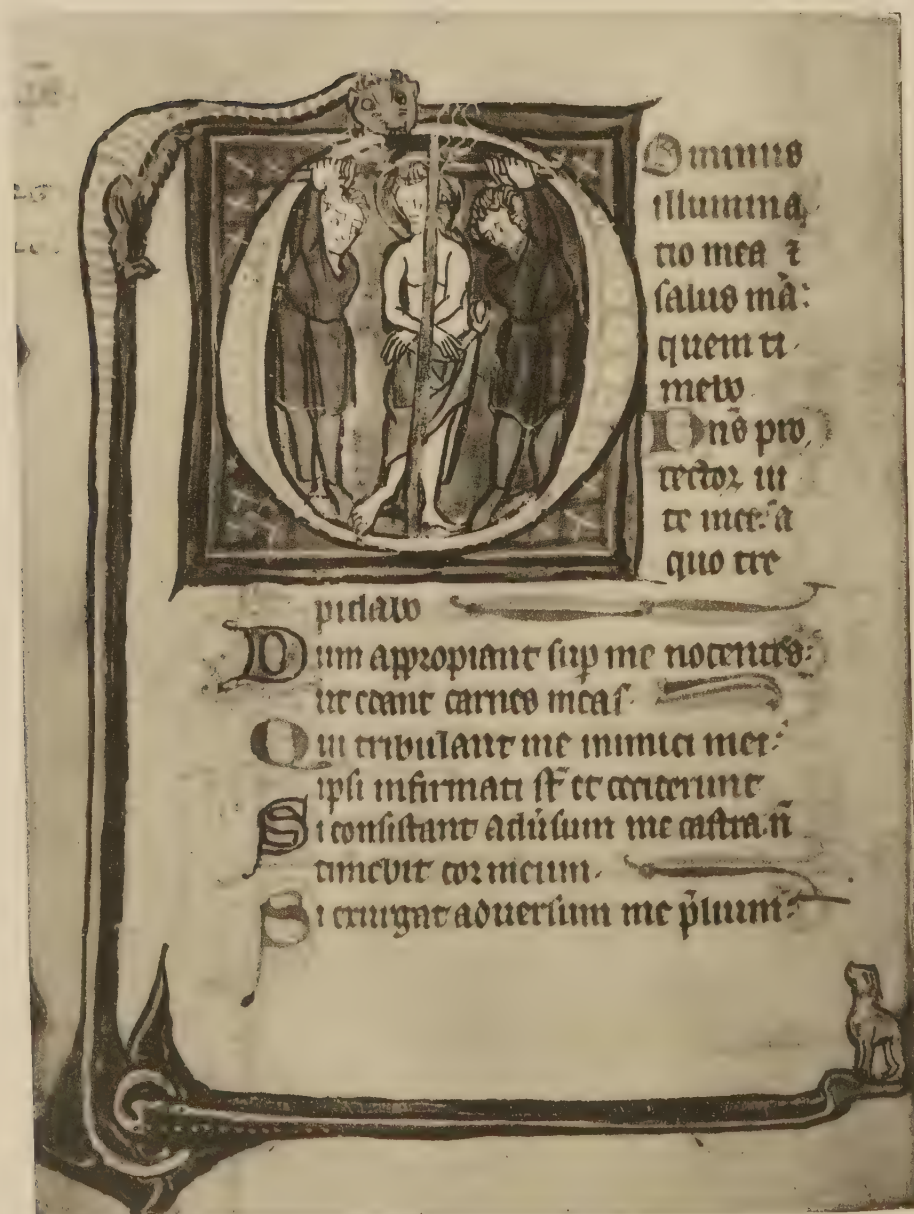 Dominus
illumina
tio mea ⁊
salus mā:
quem ti
mebo.
Dn̄s pro
tector ui
te mee: a
quo tre
pidabo
Dum appropiant sup me nocentes:
ut edant carnes meas.
Qui tribulant me inimici mei:
ipsi infirmati st̄ et ceciderunt
Si consistant adūsum me castra. n̄
timebit cor meum.
Si exurgat adversum me p̄lium: